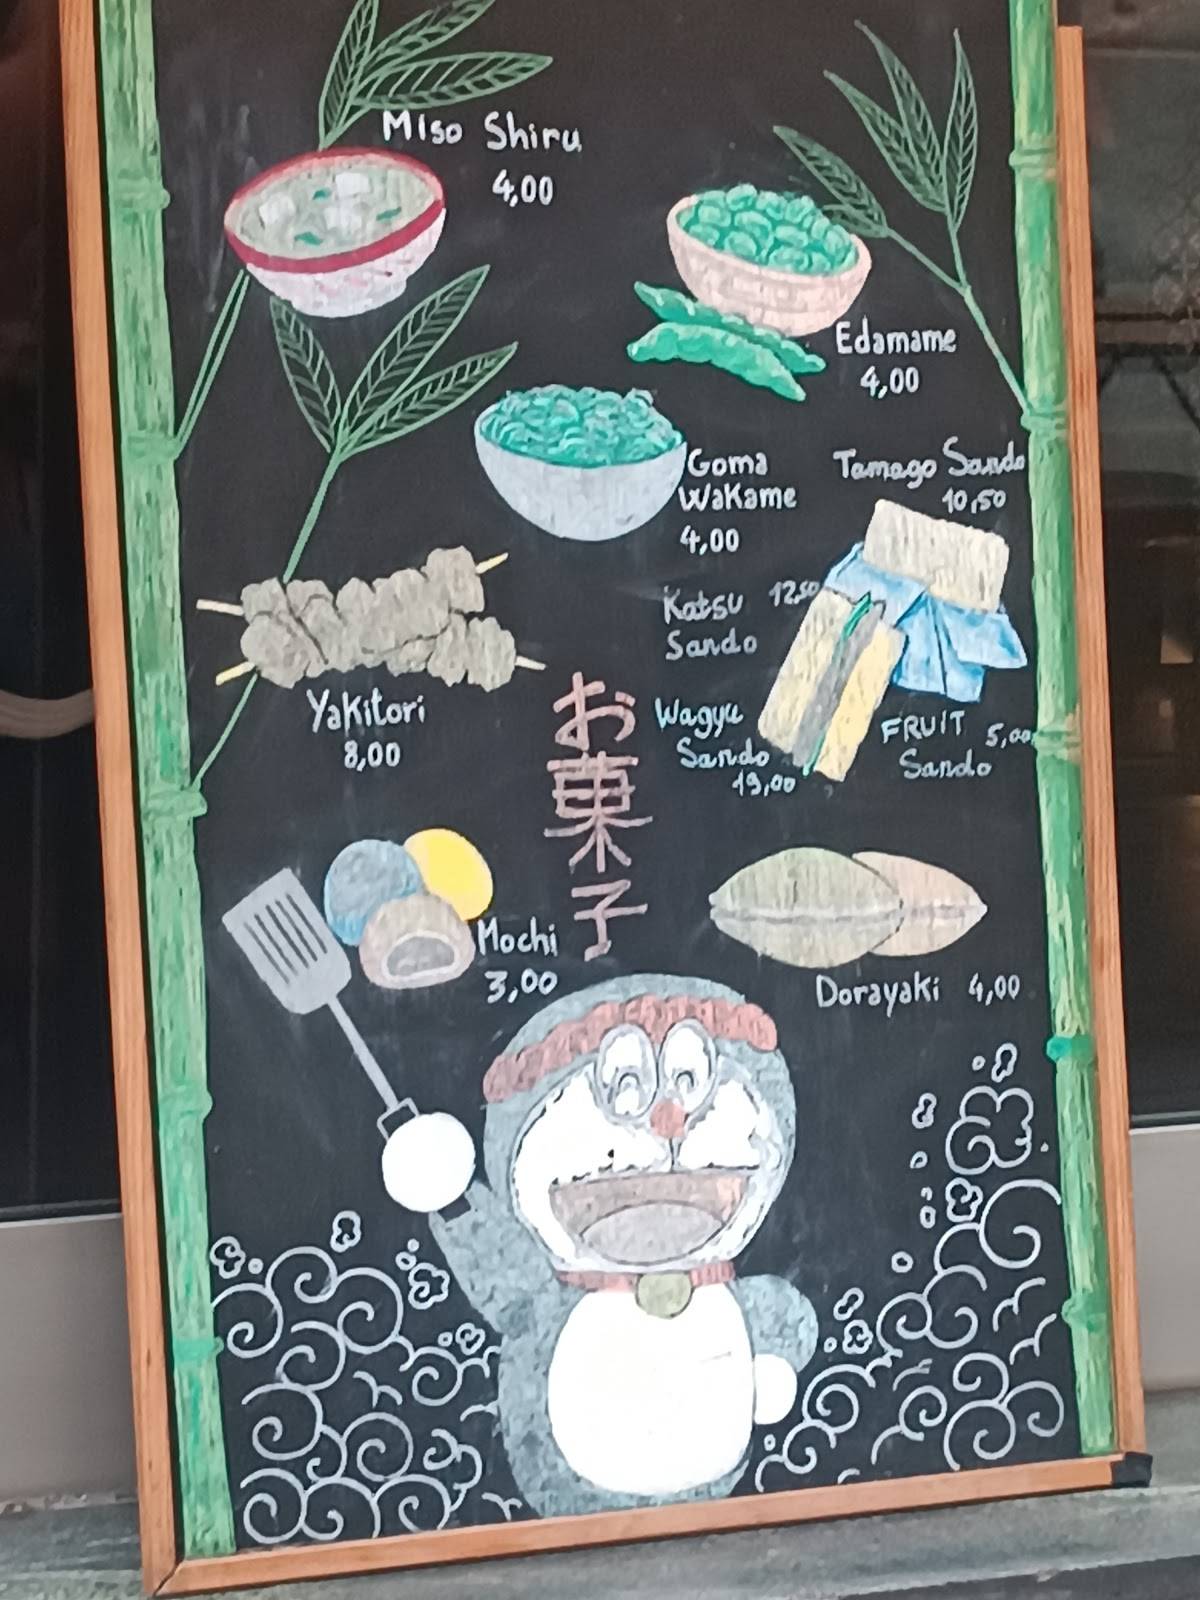 Miso Shiru
4,00
Edamame
4,00
Goma
Wakame
4,00
Tamago Sando
10,50
Katsu 12,50
Sando
Yakitori
8,00
Wagyu
Sando
19,00
FRUIT 5,00
Sando
お菓子
Mochi
3,00
Dorayaki 4,00